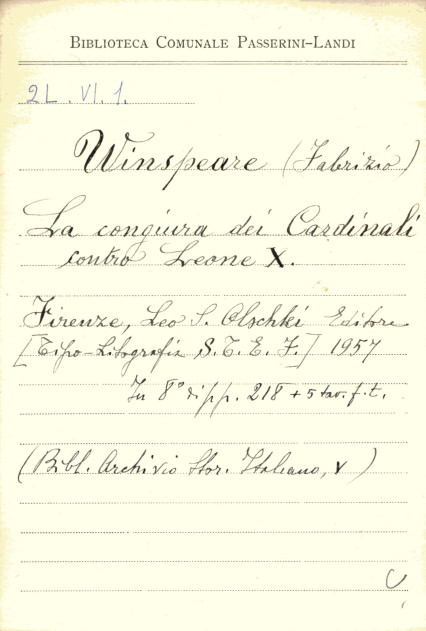 BIBLIOTECA COMUNALE PASSERINI-LANDI
2L. VI. 1.
Winspeare (Fabrizio)
La congiura dei Cardinali
contro Leone X.
Firenze, Leo S. Olschki Editore
[Tipo-Litografia S.T.E.F.] 1957
In 8° di pp. 218 + 5 tav. f. t.
(Bibl. Archivio Stor. Italiano, V)